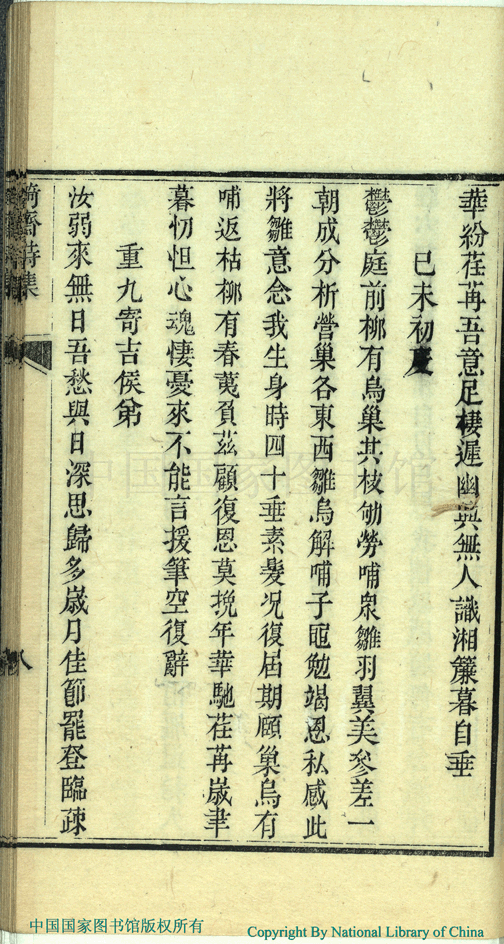 華紛荏苒吾意足棲遲幽興無人識湘簾暮自垂
己未初度
鬱鬱庭前柳有烏巢其枝劬勞哺衆雛羽翼美參差一
朝成分析營巢各東西雛烏解哺子黽勉竭恩私感此
將雛意念我生身時四十垂素髮况復屆期頤巢烏有
哺返枯柳有春荑負茲顧復恩莫挽年華馳荏苒歲聿
暮忉怛心魂悽憂來不能言援筆空復辭
重九寄吉侯弟
汝弱來無日吾愁與日深思歸多歲月佳節罷登臨疎
齋詩集
八
中国国家图书馆
中国国家图书馆版权所有
Copyright By National Library of China